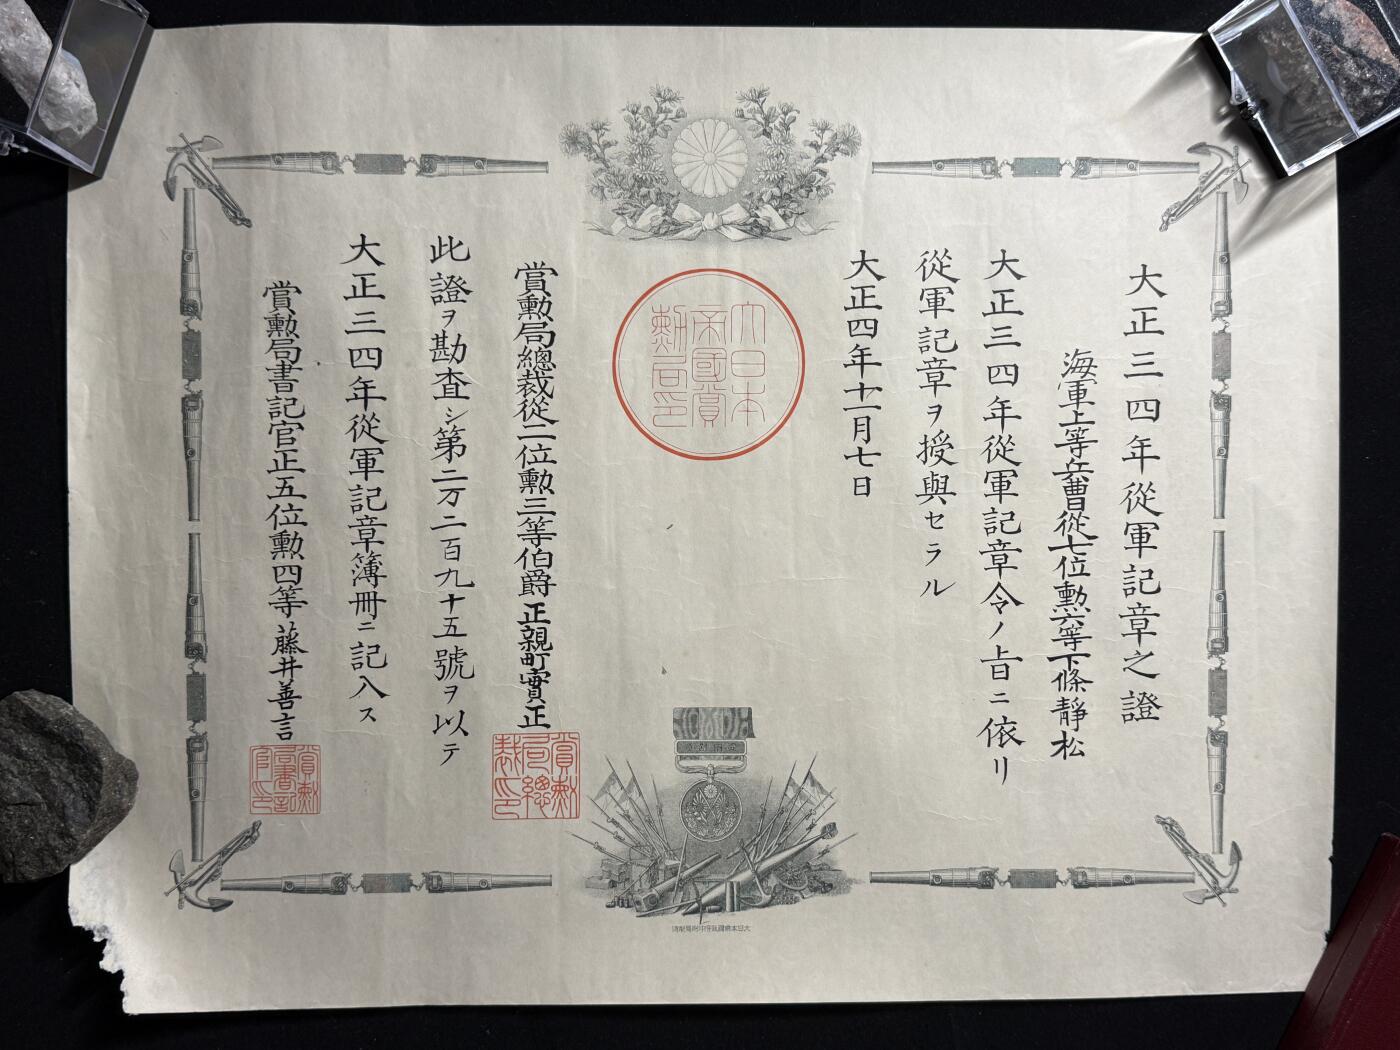 大正三四年從軍記章之證
海軍上等兵曹從七位勲六等下條靜松
大正三四年從軍記章令ノ旨ニ依リ
從軍記章ヲ授與セラル
大正四年十一月七日
大日本
帝國賞
勲局印
賞勲局總裁從二位勲三等伯爵正親町實正
賞勲
局總
裁印
此證ヲ勘査シ第二万二百九十五號ヲ以テ
大正三四年從軍記章簿冊ニ記入ス
賞勲局書記官正五位勲四等藤井善言
賞勲
局書記
官印